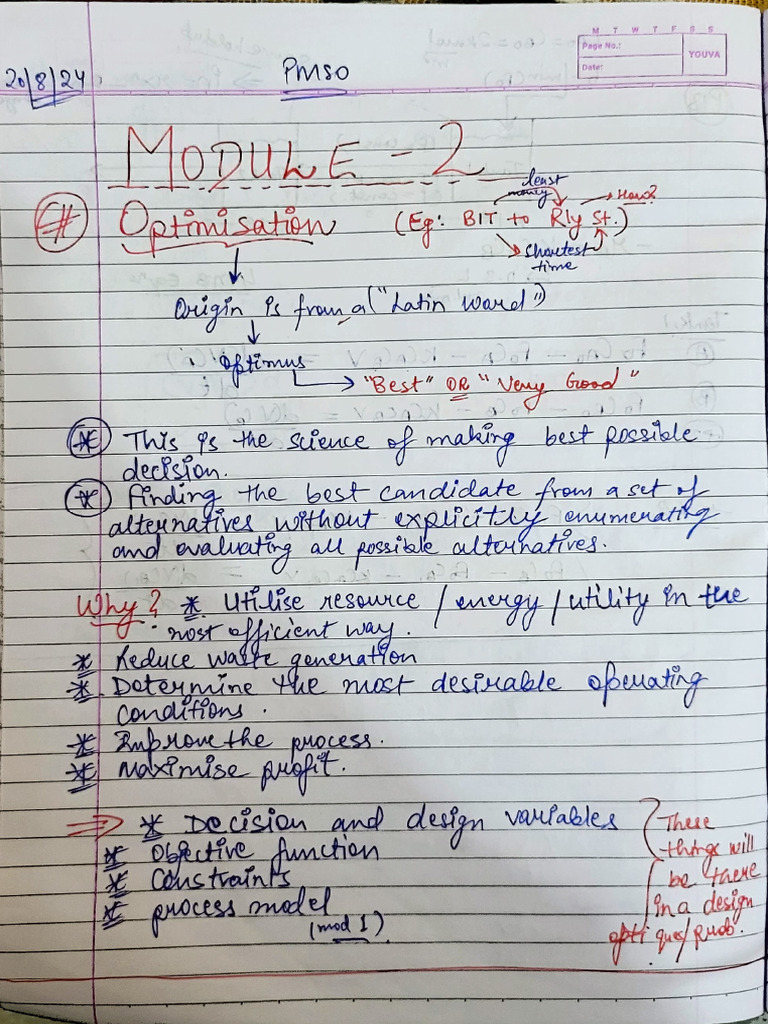 M T W T F S S
Page No.:
Date:
YOUVA
20/8/24
PMSO
MODULE - 2
# Optimisation (Eg: BIT to Rly St.) → How?
least money
shortest time
Origin is from a ("Latin word")
Optimus
→ "Best" OR "Very Good"
* This is the science of making best possible
decision.
* Finding the best candidate from a set of
alternatives without explicitly enumerating
and evaluating all possible alternatives.
Why? * Utilise resource / energy / utility in the
most efficient way.
* Reduce waste generation
* Determine the most desirable operating
conditions.
* Improve the process.
* Maximise profit.
⇒ * Decision and design variables
* Objective function
* Constraints
* process model
(mod 1)
These
things will
be there
in a design
opti ques/prob.